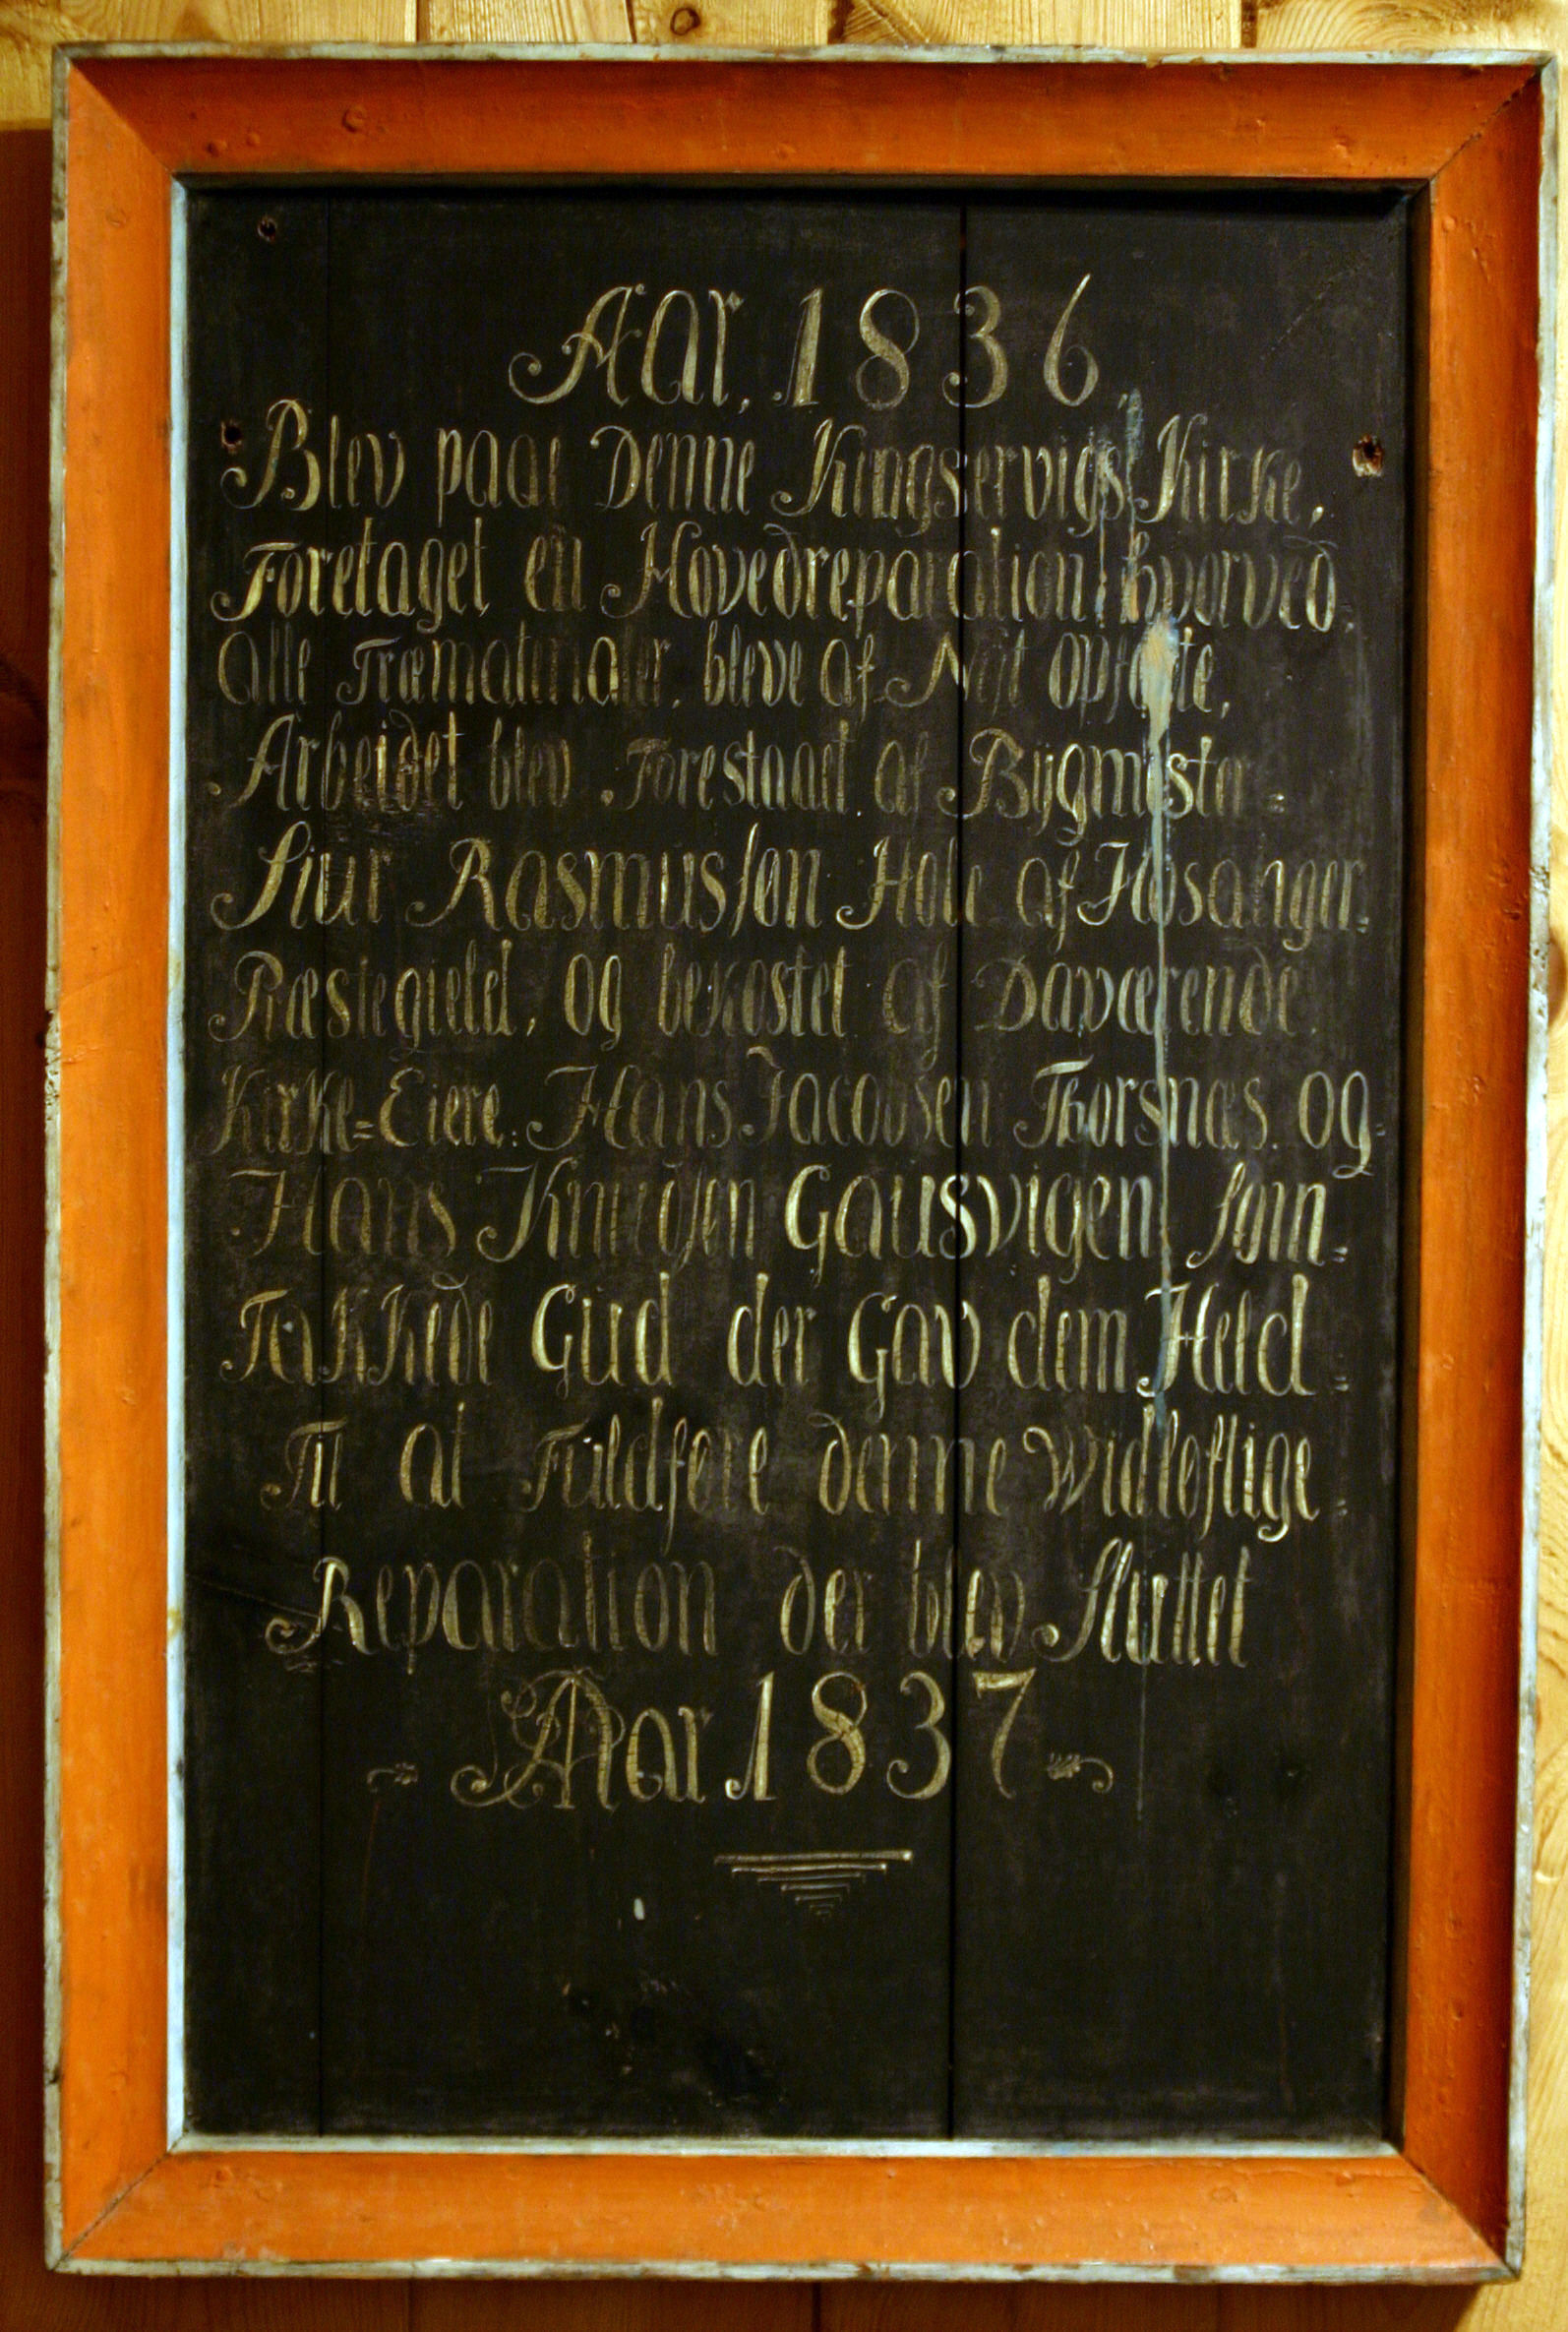 Aar, 1836,
Blev paae Denne Kingservigs Kirke,
Foretaget en Hovedreparation, hvorved,
alle Træmatrialer, bleve af Nÿt opførte,
Arbeidet blev Forestaaet af Bÿgmester=
Siur Rasmussøn Hole af Hosanger=
Præstegield, og bekostet af Daværende
Kirke=Eiere: Hans Jacobsen Thorsnæs og=
Hans Knudsen Gausvigen som=
Takkede Gud der Gav dem Held=
Til at Fuldføre denne Widløftige=
Reparation der blev Sluttet
Aar 1837